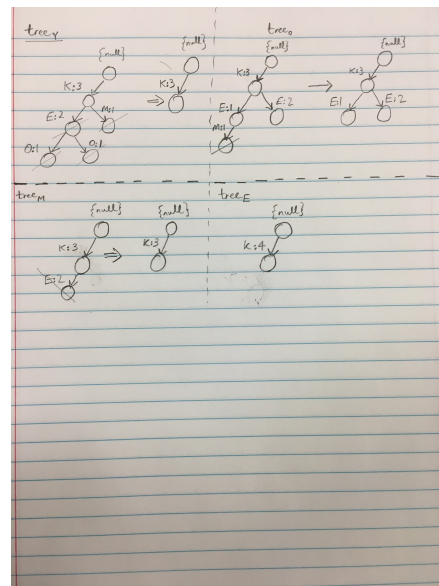 tree Y
{null}
K:3
E:2
M:1
O:1
O:1
⇒
{null}
K:3
tree o
{null}
K:3
E:1
E:2
M:1
→
{null}
K:3
E:1
E:2
tree M
{null}
K:3
E:2
⇒
{null}
K:3
tree E
{null}
K:4